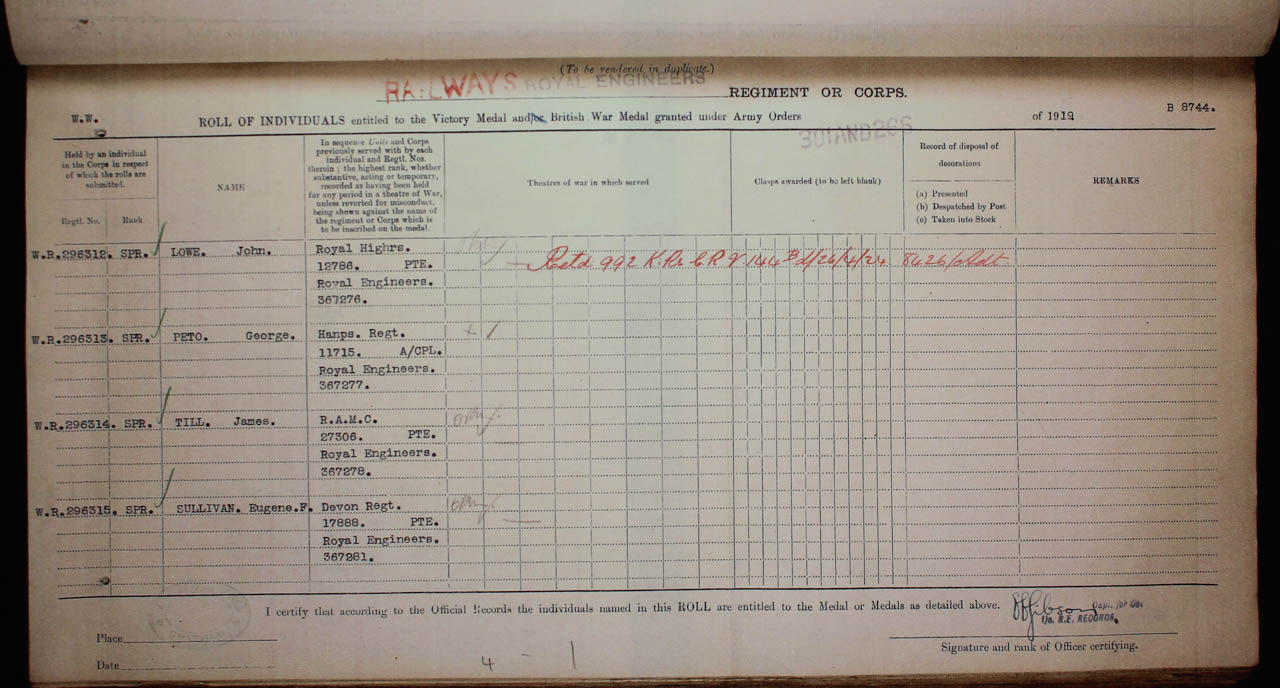 (To be rendered in duplicate.)
RAILWAYS ROYAL ENGINEERS REGIMENT OR CORPS.
B 8744.
W.W. ROLL OF INDIVIDUALS entitled to the Victory Medal and/or British War Medal granted under Army Orders 301AND266 of 1919
Held by an individual
in the Corps in respect
of which the rolls are
submitted.
Regtl. No. Rank
NAME
In sequence Units and Corps
previously served with by each
individual and Regtl. Nos.
therein ; the highest rank, whether
substantive, acting or temporary,
recorded as having been held
for any period in a theatre of War,
unless reverted for misconduct,
being shown against the name of
the regiment or Corps which is
to be inscribed on the medal.
Theatres of war in which served
Clasps awarded (to be left blank)
Record of disposal of
decorations
(a) Presented
(b) Despatched by Post
(c) Taken into Stock
REMARKS
W.R.296312. SPR. LOWE. John. Royal Highrs.
12786. PTE.
Royal Engineers.
367276.
Retd 992 K.Rs 1924 d/26/4/24
W.R.296313. SPR. PETO. George. Hanps. Regt.
11715. A/CPL.
Royal Engineers.
367277.
W.R.296314. SPR. TILL. James. R.A.M.C.
27306. PTE.
Royal Engineers.
367278.
W.R.296315. SPR. SULLIVAN. Eugene.F. Devon Regt.
17888. PTE.
Royal Engineers.
367281.
I certify that according to the Official Records the individuals named in this ROLL are entitled to the Medal or Medals as detailed above.
R.E. RECORDS.
Place
Signature and rank of Officer certifying.
Date
4 - 1